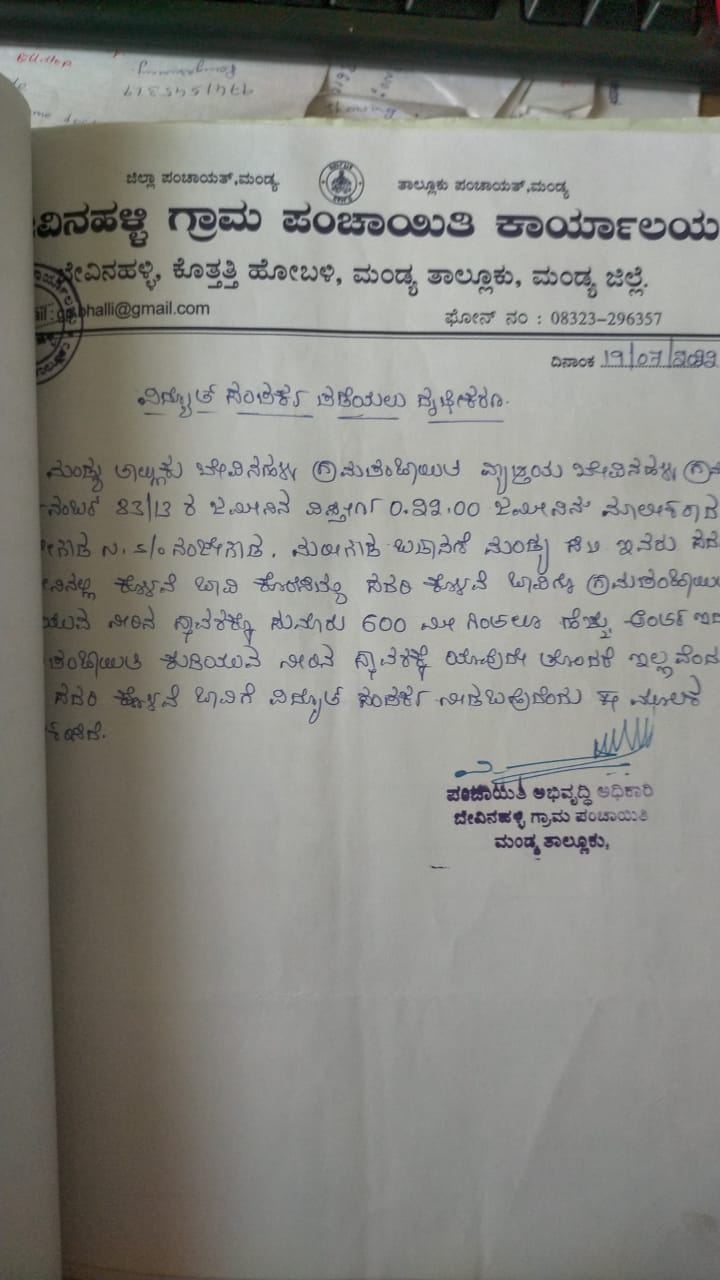 ಜಿಲ್ಲಾ ಪಂಚಾಯತ್,ಮಂಡ್ಯ. ತಾಲ್ಲೂಕು ಪಂಚಾಯತ್,ಮಂಡ್ಯ
ೇವಿನಹಳ್ಳಿ ಗ್ರಾಮ ಪಂಚಾಯಿತಿ ಕಾರ್ಯಾಲಯ
ಬೇವಿನಹಳ್ಳಿ, ಕೊತ್ತತ್ತಿ ಹೋಬಳಿ, ಮಂಡ್ಯ ತಾಲ್ಲೂಕು, ಮಂಡ್ಯ ಜಿಲ್ಲೆ.
bhalli@gmail.com ಫೋನ್ ನಂ : 08323-296357
ದಿನಾಂಕ 19/07/2022
ವಿದ್ಯುತ್ ಸಂಪರ್ಕ ಪಡೆಯಲು ದೃಢೀಕರಣ.
ಮಂಡ್ಯ ತಾಲ್ಲೂಕು ಬೇವಿನಹಳ್ಳಿ ಗ್ರಾಮಪಂಚಾಯಿತಿ ವ್ಯಾಪ್ತಿಯ ಬೇವಿನಹಳ್ಳಿ ಗ್ರಾಮ
ನಂಬರ್ 83/13 ರ ಜಮೀನಿನ ವಿಸ್ತೀರ್ಣ 0.22.00 ಜಮೀನಿನ ಮಾಲೀಕರಾದ
ನ. S/o ನಂಜೇಗೌಡ. ಮಂಡ್ಯ ಇವರು ಸದರಿ
ಕೊಳವೆ ಬಾವಿ ಕೊರೆಸಿದ್ದು ಸದರಿ ಕೊಳವೆ ಬಾವಿಗೂ ಗ್ರಾಮಪಂಚಾಯಿ
ಯುವ ನೀರಿನ ಸ್ಥಾವರಕ್ಕೂ ಸುಮಾರು 600 ಮೀ ಗಿಂತಲೂ ಹೆಚ್ಚು ಅಂತರ ಇದ
ಪಂಚಾಯಿತಿ ಕುಡಿಯುವ ನೀರಿನ ಸ್ಥಾವರಕ್ಕೆ ಯಾವುದೇ ತೊಂದರೆ ಇಲ್ಲವೆಂದ
ಸದರಿ ಕೊಳವೆ ಬಾವಿಗೆ ವಿದ್ಯುತ್ ಸಂಪರ್ಕ ನೀಡಬಹುದೆಂದು ಈ ಮೂಲಕ
ಪಂಚಾಯಿತಿ ಅಭಿವೃದ್ಧಿ ಅಧಿಕಾರಿ
ಬೇವಿನಹಳ್ಳಿ ಗ್ರಾಮ ಪಂಚಾಯಿತಿ
ಮಂಡ್ಯ ತಾಲ್ಲೂಕು,